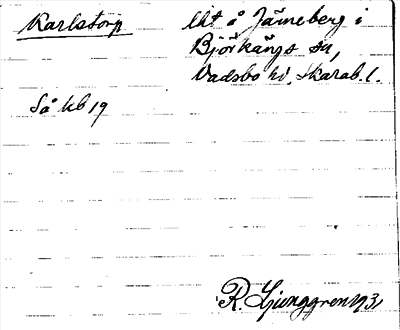 Karlstorp lht å Järneberg i
Björkängs sn,
Vadsbo hd, Skarab. l.
Så kb 19
R. Ljunggren 1931